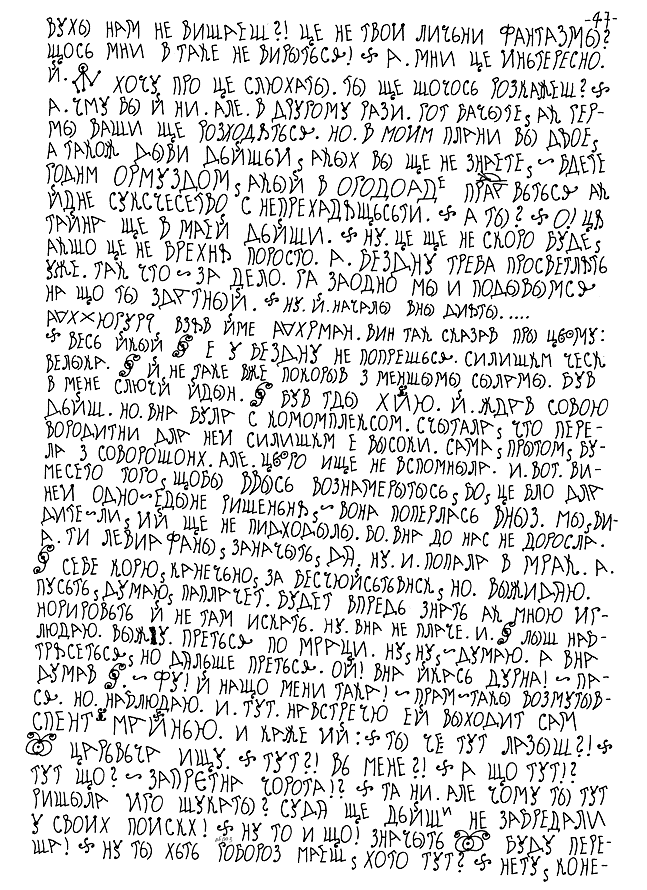 -47-
ВУХЫ НАМ НЕ ВИШАЕШ?! ЦЕ НЕ ТВОИ ЛИЧЬНИ ФАНТАЗМЫ?
ЩОСЬ МНИ В ТАКЕ НЕ ВИРЫТЬСЯ! А. МНИ ЦЕ ИНЬТЕРЕСНО.
Й. ХОЧУ ПРО ЦЕ СЛЮХАТЫ. ТЫ ЩЕ ШОЧОСЬ РОЗКАЖЕШ?
А. ЧМУ ВЫ Й НИ. АЛЕ. В ДРУГОМУ РАЗИ. ГОТ БАЧЫТЕ, АК ГЕР-
МЫ ВАШИ ЩЕ РОЗХОДЯТЬСЯ. НО. В МОИМ ПЛАНИ ВЫ ДВОЕ,
А ТАКОЖ ДЫВИ ДЫЙШЫИ, АКЫХ ВЫ ЩЕ НЕ ЗНАЕТЕ, ~ БДЕТЕ
ГОДНМ ОРМУЗДОМ, АКЫЙ В ОГОДОАДЕ ВЬТЬСЯ АК
ЙДНЕ СУКСЧЕСЕТВО С НЕПРЕХАДЯЩЬСЬТИ. А ТЫ? О! ЦЯ
ТАЙНА ЩЕ В МАЕЙ ДЫЙШИ. НУ. ЦЕ ЩЕ НЕ СКОРО БУДЕ,
АКШО ЦЕ НЕ БРЕХНЯ ПОРОСТО. А. БЕЗДНУ ТРЕБА ПРОСВЕТЛЯТЬ
УЖЕ. ТАК ЧТО ~ ЗА ДЕЛО. ГА ЗАОДНО МЫ И ПОДЫВЫМСЯ
НА ЩО ТЫ ЗДАТНЫЙ. НУ. Й. НАЧАЛЫ ВНЫ ДИЯТЫ.....
ВЗЯВ ЙМЕ АХРМАН. ВИН ТАК СКАЗАВ ПРО ЦЬОМУ:
ВЕСЬ ЙКЫЙ Е У БЕЗДНУ НЕ ПОПРЕШЬСЯ. СИЛИШКМ ЧЕСК
ВЕЛЫКА. Й. НЕ ТАКЕ ВЖЕ ПОКОРЫВ З МЕНШЫМЫ СЫЛАМЫ. БУВ
В МЕНЕ СЛЮЧЙ ЙДЫН. БУВ ТДЫ Й. ЖДАВ СОВОЮ
ДЫЙШ. НО. ВНА БУЛА С КОМОМПЛЕКСОМ. СЧЫТАЛА, ЧТО ПЕРЕ-
ВОРОДИТНИ ДЛА НЕИ СИЛИШКМ Е ВЫСОКИ. САМА, ПРОТОМ, БУ-
ЛА З СОВОРОШОНХ. АЛЕ. ЦЬОГО ИЩЕ НЕ ВСПОМНЫЛА. И. ВОТ. ВИ-
МЕСЕТО ТОГО, ЩОБЫ ВВЫСЬ ВОЗНАМЕРЫТЫСЬ, БО, ЦЕ БЛО ДЛА
НЕИ ОДНО~ЕДЫНЕ РИШЕНЬНЯ, ~ ВОНА ПОПЕРЛАСЬ ВНЫЗ. МЫ, ВИ-
ДИТЕ~ЛИ, ИЙ ЩЕ НЕ ПИДХОДЫЛЫ. БО. ВНА ДО НАС НЕ ДОРОСЛА.
А. ТИ ЛЕВИА ФАНЫ, ЗАНАЧЫТЬ, ДА, НУ. И. ПОПАЛА В МРАК. А.
СЕБЕ КОРЮ, КАНЕЧЬНО, ЗА БЕСЧЮЙСЬТЬВНСК, НО. ВЫЖИДАЮ.
ПУСЬТЬ, ДУМАЮ, ПАПЛАЧЕТ. БУДЕТ ВПРЕДЬ ЗНАТЬ АК МНОЮ ИГ-
НОРИРОВЬТЬ Й НЕ ТАМ ИСКАТЬ. НУ. ВНА НЕ ПЛАЧЕ. И. ЛЫШ НАБ-
ЛЮДАЮ. ПРЕТЬСЯ ПО МРАЦИ. НУ, НУ, ~ ДУМАЮ. А ВНА
ТРЯСЕТЬСЯ, НО ДАЛЬШЕ ПРЕТЬСЯ. ОЙ! ВНА ЙКАСЬ ДУРНА! ~ ПА-
ДУМАВ. ~ ФУ! Й НАЩО МЕНИ ТАКА! ~ ПРАМ~ТАКЫ ВОЗМУТЫВ-
СЯ. НО. НАБЛЮДАЮ. И. ТУТ. НАВСТРЕЧЮ ЕЙ ВЫХОДИТ САМ
И КАЖЕ ИЙ: ТЫ ЧЕ ТУТ ЛАЗЫШ?!
ЦАРЬВЬЧА ИЩУ. ТУТ?! ВЬ МЕНЕ?! А ЩО ТУТ!?
ТУТ ЩО? ~ ЗАПРЕТНА ЧОРОТА!? ТА НИ. АЛЕ ЧОМУ ТЫ ТУТ
РИШЫЛА ИГО ШУКАТЫ? СУДА ЩЕ ДЫЙШИ НЕ ЗАБРЕДАЛИ
У СВОИХ ПОИСКХ! НУ ТО И ЩО! ЗНАЧЫТЬ БУДУ ПЕРЕ-
ША! НУ ТЫ ХЬТЬ ГОБОРОЗ МАЕШ, ХОТО ТУТ? НЕТУ, КОНЕ-